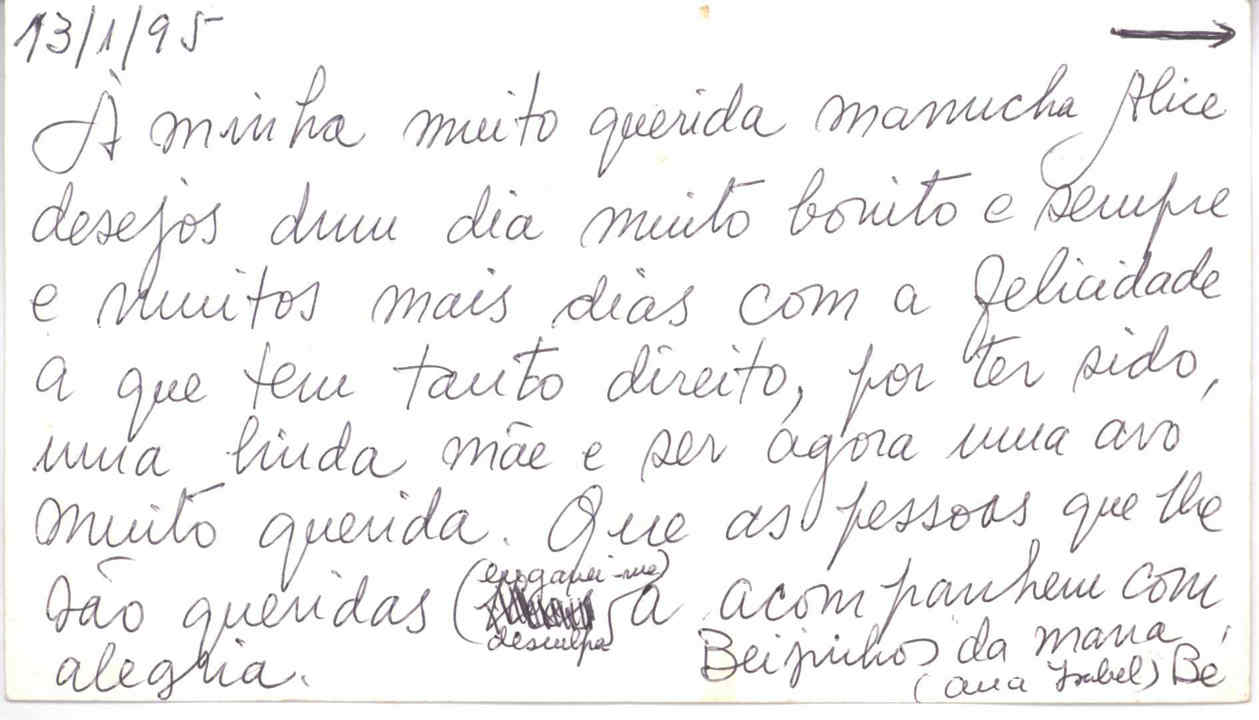 13/1/95
À minha muito querida manucha Alice
desejos dum dia muito bonito e sempre
e muitos mais dias com a felicidade
a que tem tanto direito, por ter sido,
uma linda mãe e ser agora uma avo
muito querida. Que as pessoas que lhe
são queridas (enganei-me) a acompanhem com
desculpa
alegria.
Beijinhos da mana
(Ana Isabel) Bé